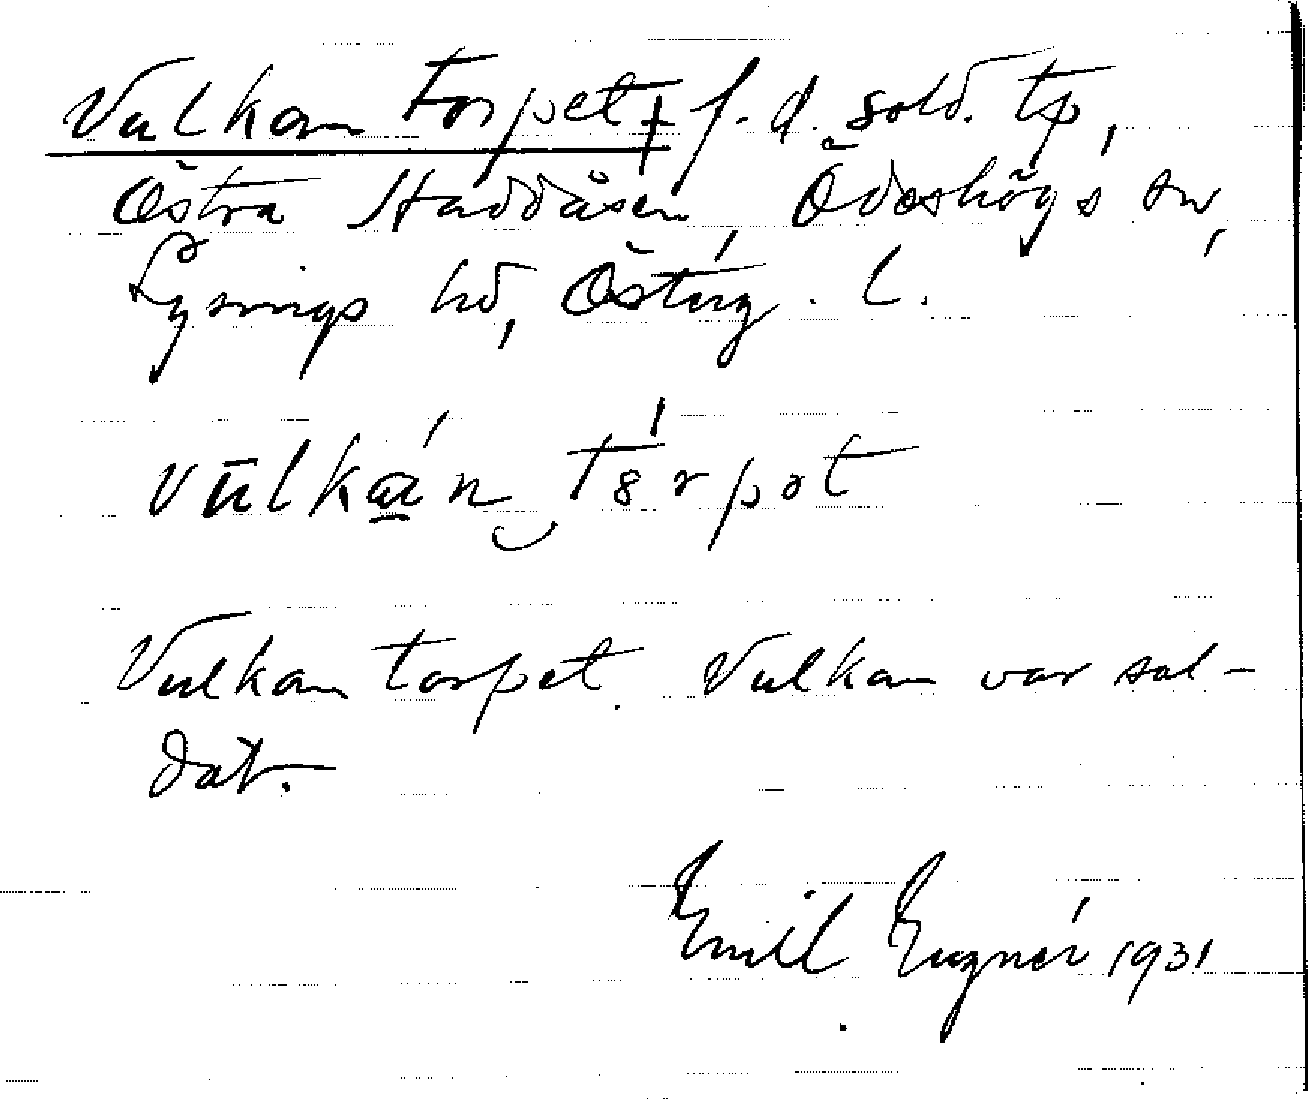 Vulkan torpet, † f.d. sold. tp,
Östra Haddåsen, Ödeshögs sn,
Lysings hd, Östérg. l.
Vulkan torpet. Vulkan var sol-
dat.
Emil Eugnér 1931